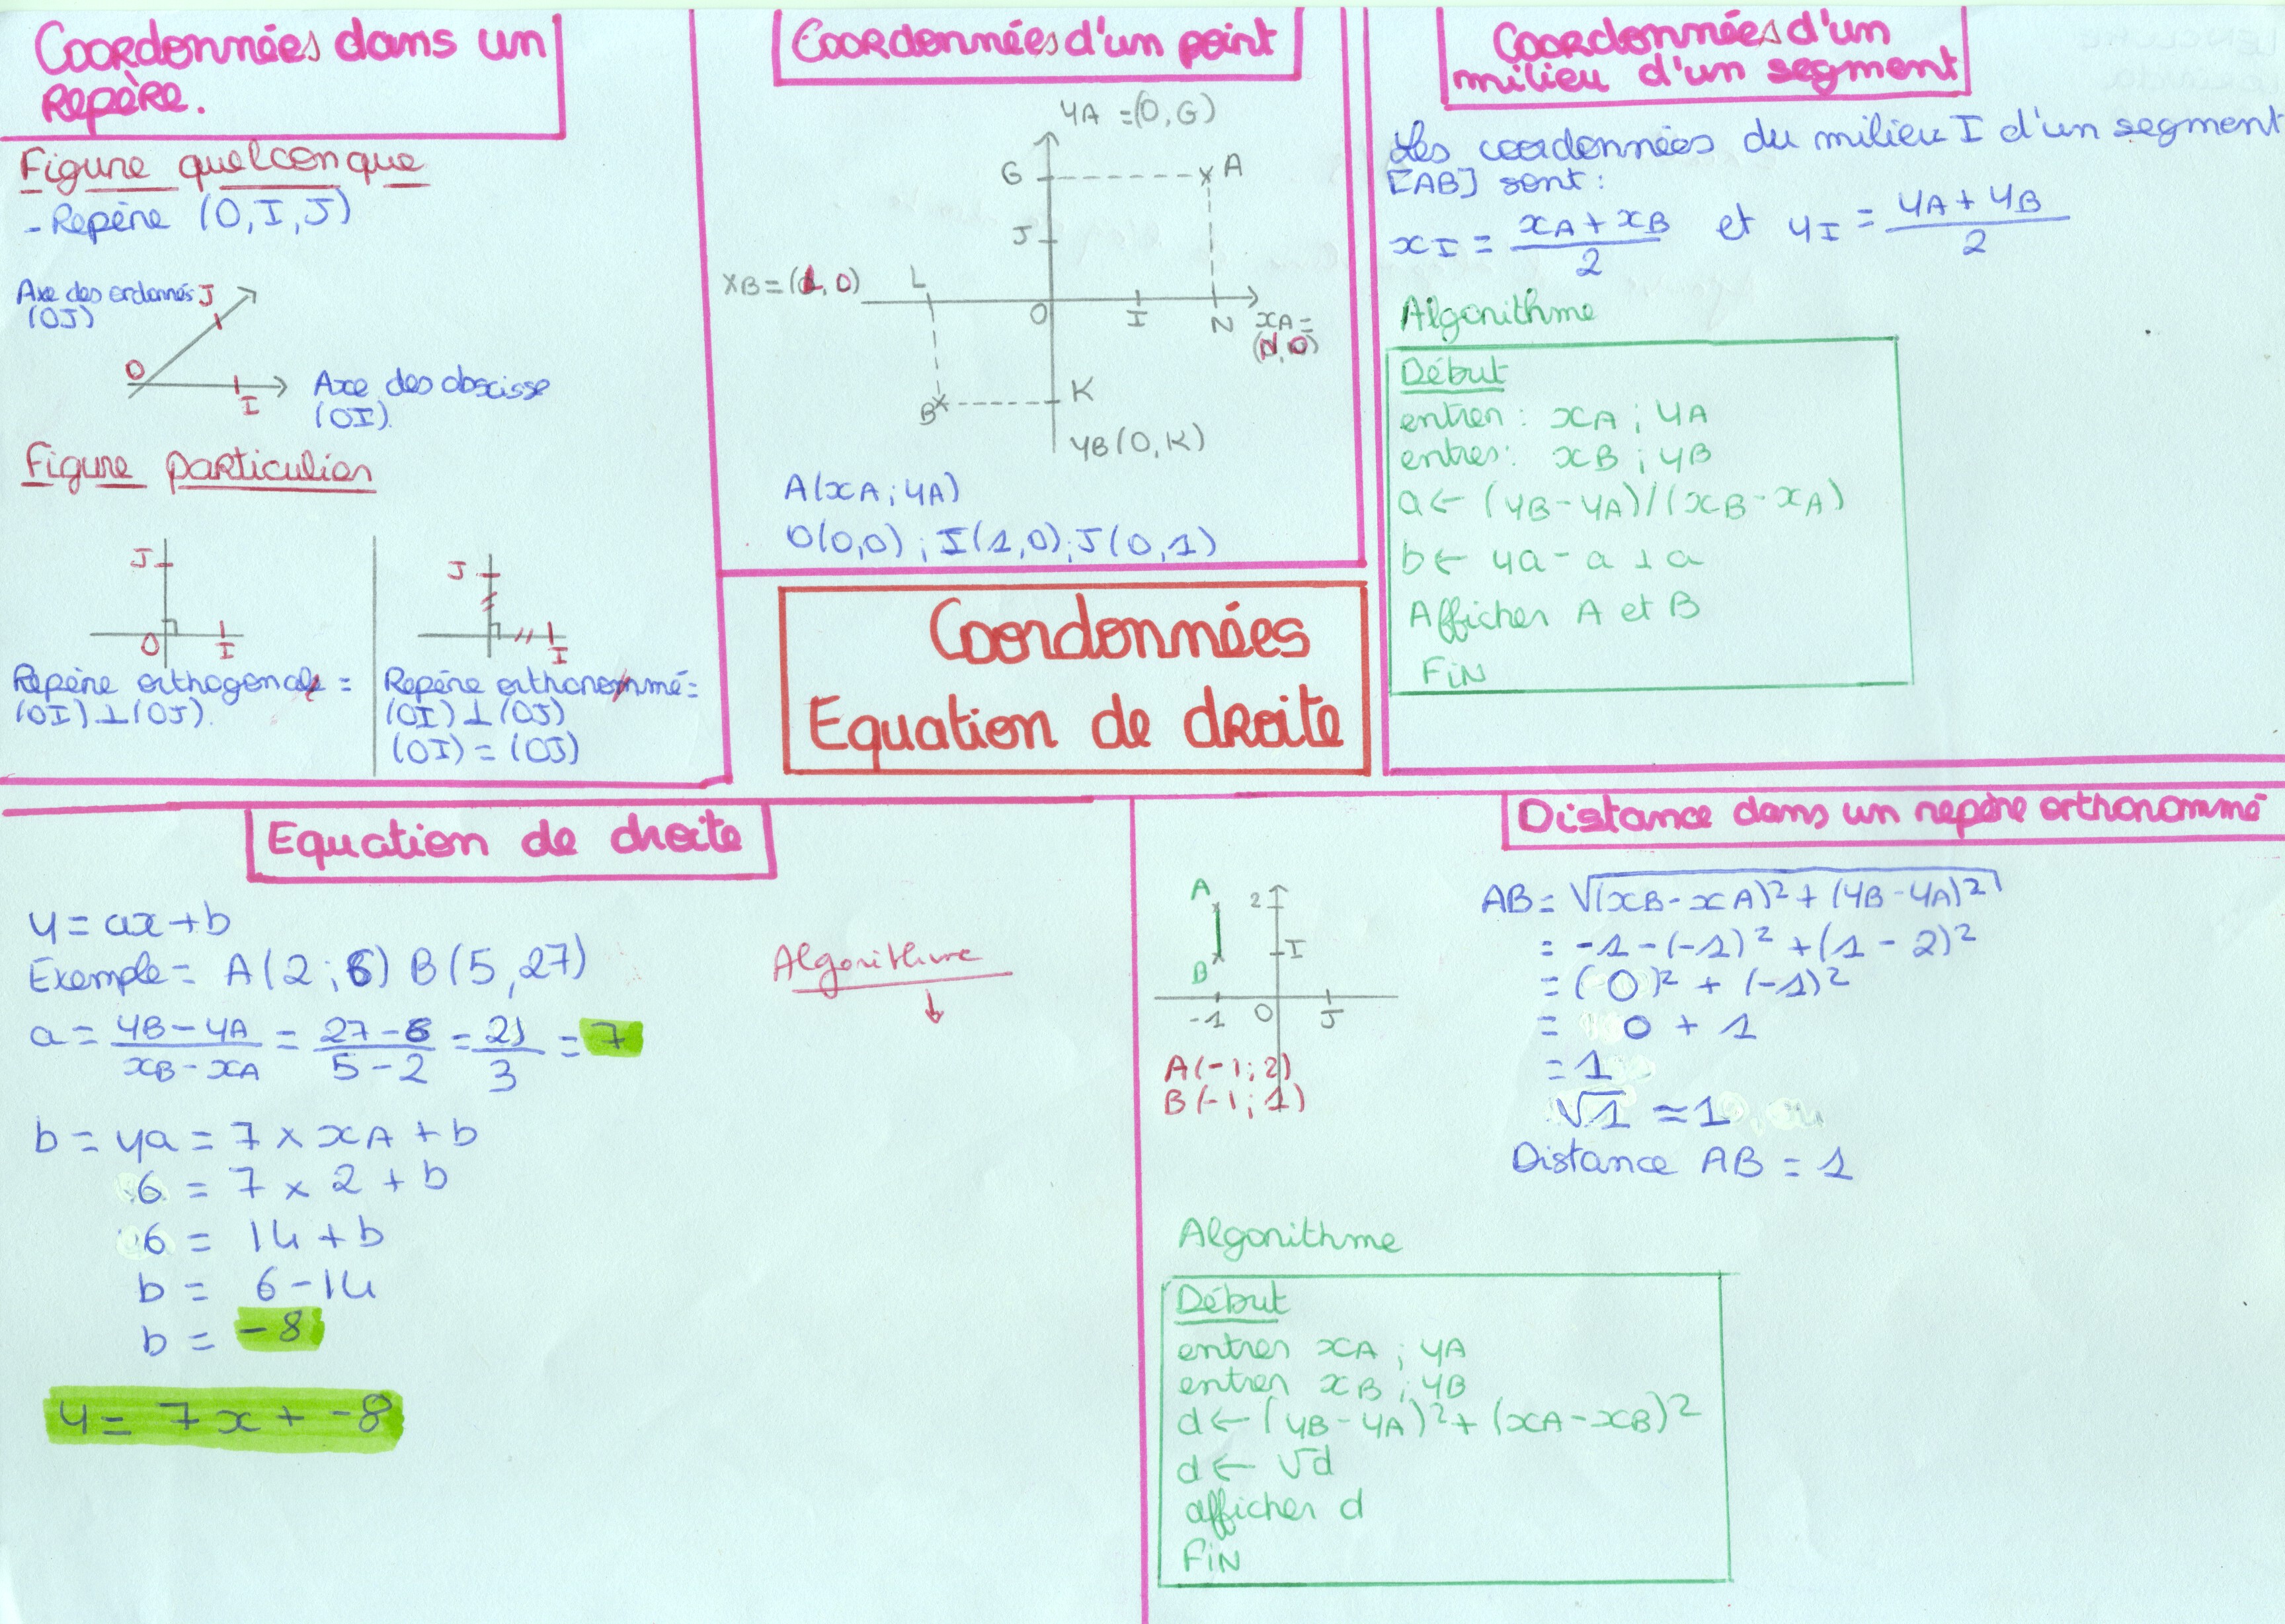 Coordonnées dans un
Repère.
Figure quelconque
- Repère (O,I,J)
Axe des ordonnés J
(OJ)
O
I
Axe des abscisse
(OI).
Figure particulier
J
O
I
Repère orthogonale =
(OI)⊥(OJ).
J
I
Repère orthonommé =
(OI)⊥(OJ)
(OI) = (OJ)
Coordonnées d'un point
yA =(O,G)
G
A
J
xB = (L, O)
L
O
I
N
xA =
(N,O)
B
K
yB (O,K)
A(xA ; yA)
O(0,0) ; I(1,0) ; J(0,1)
Coordonnées
Equation de droite
Coordonnées d'un
milieu d'un segment
Les coordonnées du milieu I d'un segment
[AB] sont :
xI = (xA + xB)/2 et yI = (yA + yB)/2
Algorithme
Début
entrer : xA ; yA
entrer : xB ; yB
a ← (yB - yA)/(xB - xA)
b ← ya - a ⊥ a
Afficher A et B
FiN
Equation de droite
y = ax + b
Exemple = A(2 ; 6) B(5,27)
a = (yB - yA)/(xB - xA) = (27 - 6)/(5 - 2) = 21/3 = 7
b = ya = 7 × xA + b
6 = 7 × 2 + b
6 = 14 + b
b = 6 - 14
b = -8
y = 7x + -8
Algorithme
↓
Distance dans un repère orthonommé
A
2
I
B
-1
O
J
A(-1 ; 2)
B(-1 ; 1)
AB = √(xB - xA)² + (yB - yA)²
= -1 - (-1)² + (1 - 2)²
= (0)² + (-1)²
= 0 + 1
= 1
√1 ≈ 1
Distance AB = 1
Algorithme
Début
entrer xA ; yA
entrer xB ; yB
d ← (yB - yA)² + (xA - xB)²
d ← √d
afficher d
FiN